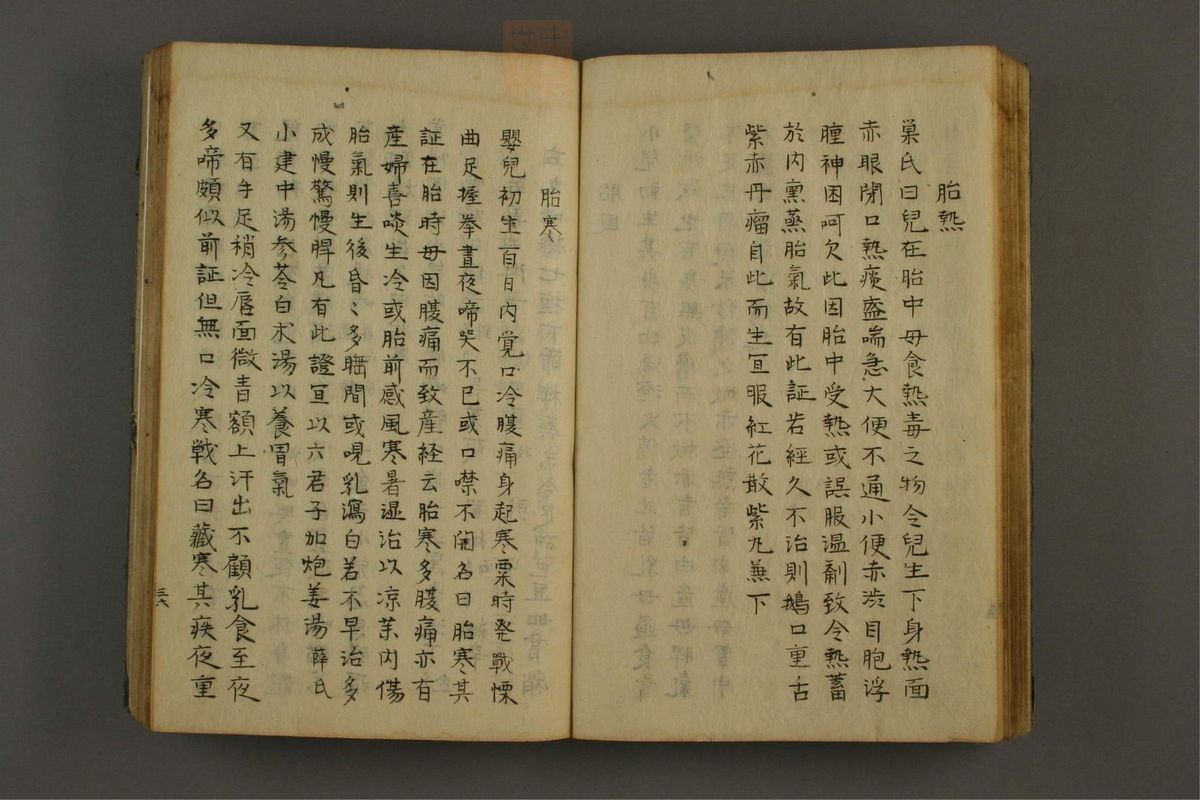 胎熱
巣氏曰兒在胎中母食熱毒之物令兒生下身熱面
赤眼閉口熱痰盛喘急大便不通小便赤渋目胞浮
腫神困呵欠此因胎中受熱或誤服温劑致令熱蓄
於内熏蒸胎氣故有此証若經久不治則鵝口重舌
紫赤丹瘤自此而生宜服紅花散紫丸兼下
胎寒
嬰兒初生百日内覚口冷腹痛身起寒粟時発戰慄
曲足握拳晝夜啼哭不已或口噤不開名曰胎寒其
証在胎時母因腹痛而致産経云胎寒多腹痛亦有
産婦喜啖生冷或胎前感風寒暑湿治以凉薬内傷
胎氣則生後昏〻多睡間或哯乳瀉白若不早治多
成慢驚慢脾凡有此證宜以六君子加炮姜湯薛氏
小建中湯参苓白朮湯以養胃氣
又有手足稍冷唇面微青額上汗出不顧乳食至夜
多啼頗似前証但無口冷寒戰名曰藏寒其疾夜重
三六